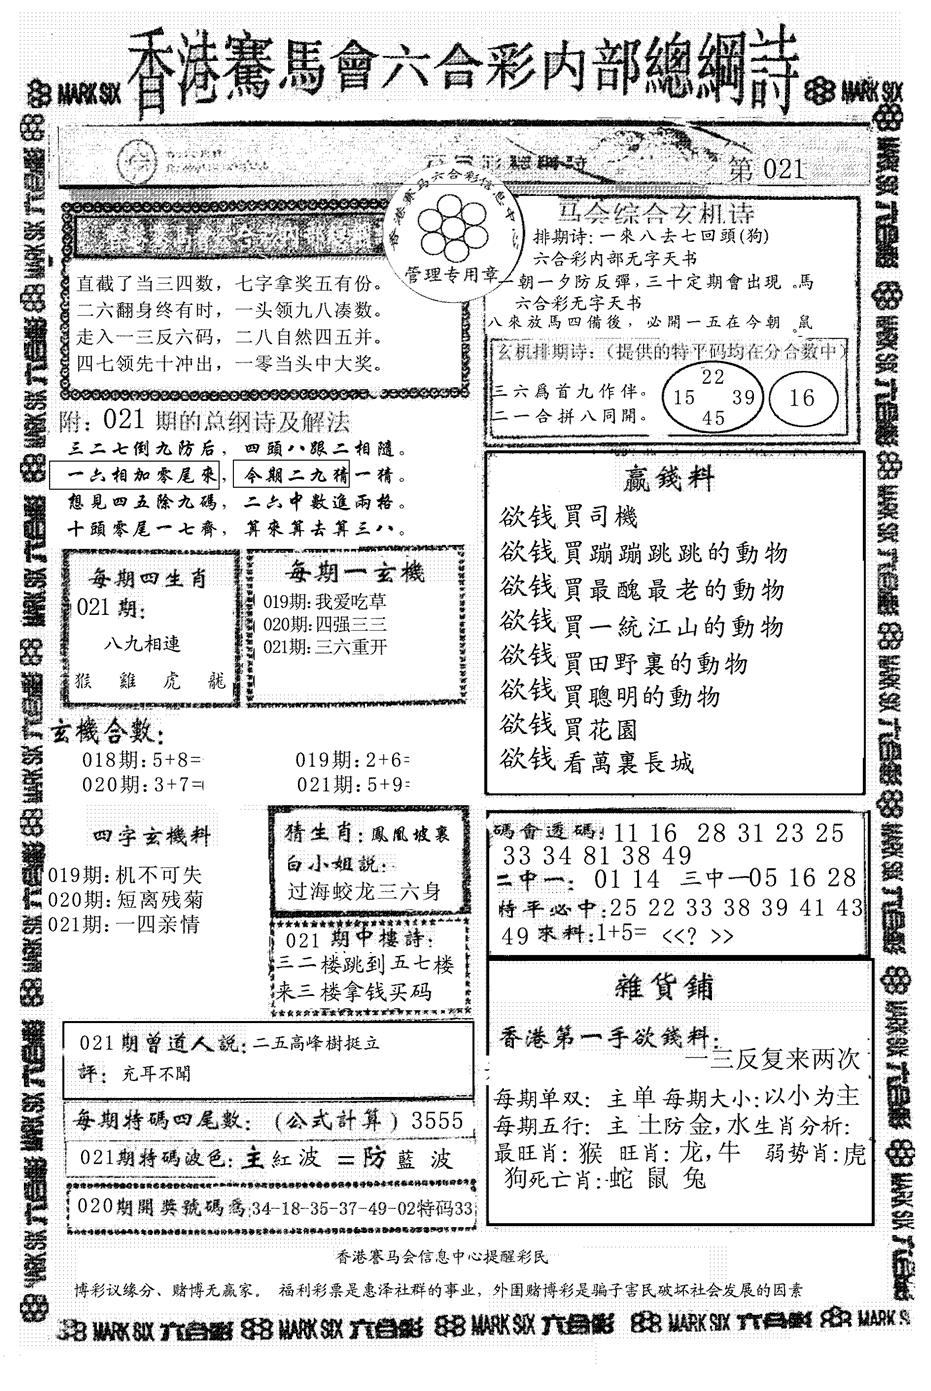 香港賽馬會六合彩内部總綱詩
MARK SIX
MARK SIX
第 021
香港赛马六合彩信息中心
管理专用章
直截了当三四数，七字拿奖五有份。
二六翻身终有时，一头领九八凑数。
走入一三反六码，二八自然四五并。
四七领先十冲出，一零当头中大奖。
附：021 期的总纲诗及解法
三二七倒九防后，四頭八跟二相隨。
一六相加零尾來，今期二九猜一猜。
想見四五除九碼，二六中數進兩格。
十頭零尾一七齊，算來算去算三八。
马会综合玄机诗
排期诗：一來八去七回頭(狗)
六合彩内部无字天书
一朝一夕防反彈，三十定期會出現 。馬
六合彩无字天书
八來放馬四備後，必開一五在今朝 。鼠
玄机排期诗：（提供的特平码均在分合数中）
三六爲首九作伴。
二一合拼八同開。
22
15 39
45
16
每期四生肖
021期：
八九相連
猴 雞 虎 龍
每期一玄機
019期：我爱吃草
020期：四强三三
021期：三六重开
贏錢料
欲钱買司機
欲钱買蹦蹦跳跳的動物
欲钱買最醜最老的動物
欲钱買一統江山的動物
欲钱買田野裏的動物
欲钱買聰明的動物
欲钱買花園
欲钱看萬裏長城
玄機合數：
018期：5+8= 019期：2+6=
020期：3+7= 021期：5+9=
四字玄機料
019期：机不可失
020期：短离残菊
021期：一四亲情
猜生肖：鳳凰坡裏
白小姐説：
过海蛟龙三六身
021 期中樓詩：
三二楼跳到五七楼
来三楼拿钱买码
碼會透碼：11 16 28 31 23 25
33 34 81 38 49
二中一：01 14 三中一05 16 28
特平必中：25 22 33 38 39 41 43
49 來料：1+5= <<? >>
021期曾道人説：二五高峰樹挺立
評：充耳不聞
每期特碼四尾數：（公式計算）3555
021期特碼波色：主紅波＝防藍波
020期開獎號碼爲:34-18-35-37-49-02特码33
雜貨鋪
香港第一手欲錢料：
一三反复来两次
每期单双：主单 每期大小：以小为主
每期五行：主 土防金，水生肖分析：
最旺肖：猴 旺肖：龙，牛 弱势肖：虎
狗死亡肖：蛇 鼠 兔
香港賽马会信息中心提醒彩民
博彩议缘分、赌博无赢家。 福利彩票是惠泽社群的事业，外围赌博彩是骗子害民破坏社会发展的因素
MARK SIX 六合彩 MARK SIX 六合彩 MARK SIX 六合彩 MARK SIX 六合彩 MARK SIX